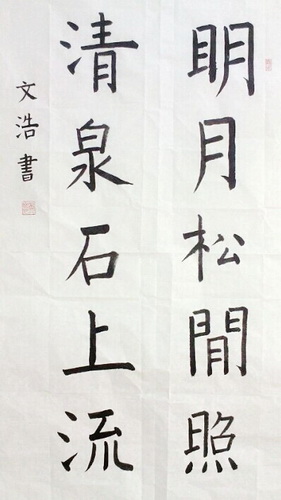 明月松閒照
清泉石上流
文浩書